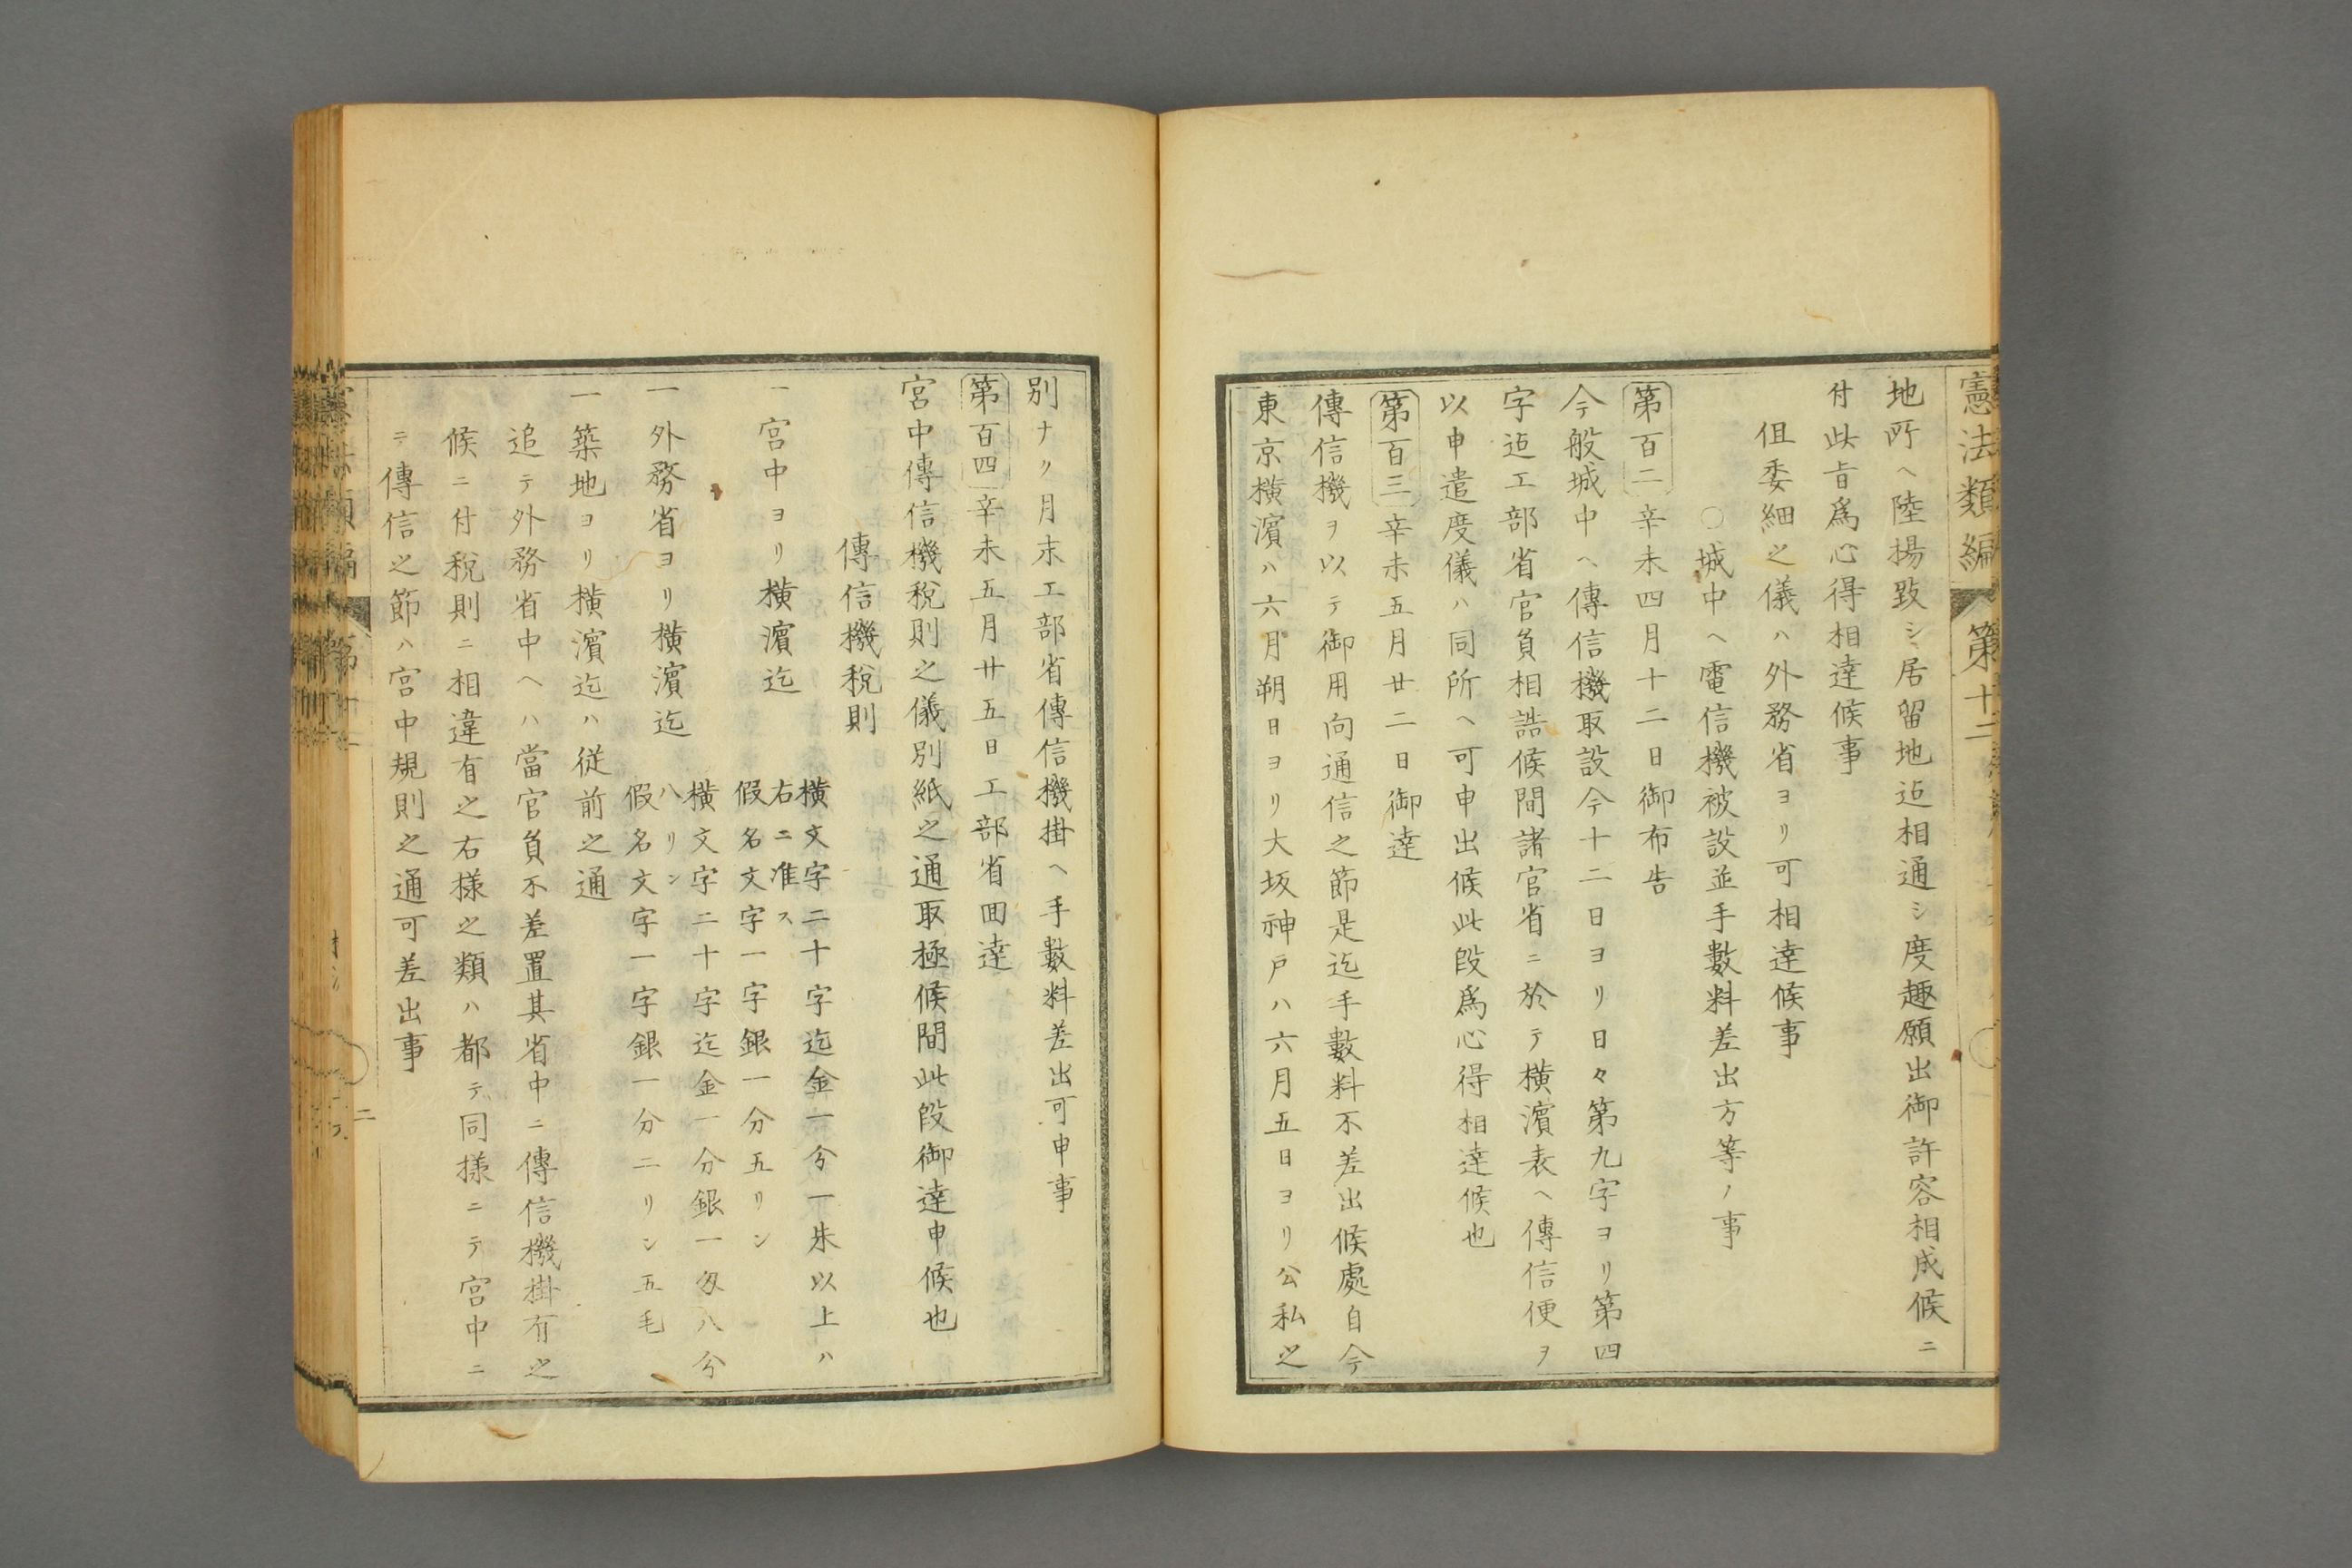 憲法類編 第十二
地所ヘ陸揚致シ居留地迄相通シ度趣願出御許容相成候ニ
付此旨爲心得相達候事
但委細之儀ハ外務省ヨリ可相達候事
○城中ヘ電信機被設並手數料差出方等ノ事
第百二 辛未四月十二日御布告
今般城中ヘ傳信機取設今十二日ヨリ日々第九字ヨリ第四
字迄工部省官負相詰候間諸官省ニ於テ横濵表ヘ傳信便ヲ
以申遣度儀ハ同所ヘ可申出候此段爲心得相達候也
第百三 辛未五月廿二日御達
傳信機ヲ以テ御用向通信之節是迄手數料不差出候處自今
東京横濵ハ六月朔日ヨリ大坂神戸ハ六月五日ヨリ公私之
別ナク月末工部省傳信機掛ヘ手數料差出可申事
第百四 辛未五月廿五日工部省回達
宮中傳信機税則之儀別紙之通取極候間此段御達申候也
傳信機税則
一宮中ヨリ横濵迄
横文字二十字迄金一分一朱以上ハ
右ニ准ス
假名文字一字銀一分五リン
一外務省ヨリ横濵迄
横文字二十字迄金一分銀一匁八分
ハリン
假名文字一字銀一分二リン五毛
一築地ヨリ横濵迄ハ従前之通
追テ外務省中ヘハ當官負不差置其省中ニ傳信機掛有之
候ニ付税則ニ相違有之右様之類ハ都テ同様ニテ宮中ニ
テ傳信之節ハ宮中規則之通可差出事
二